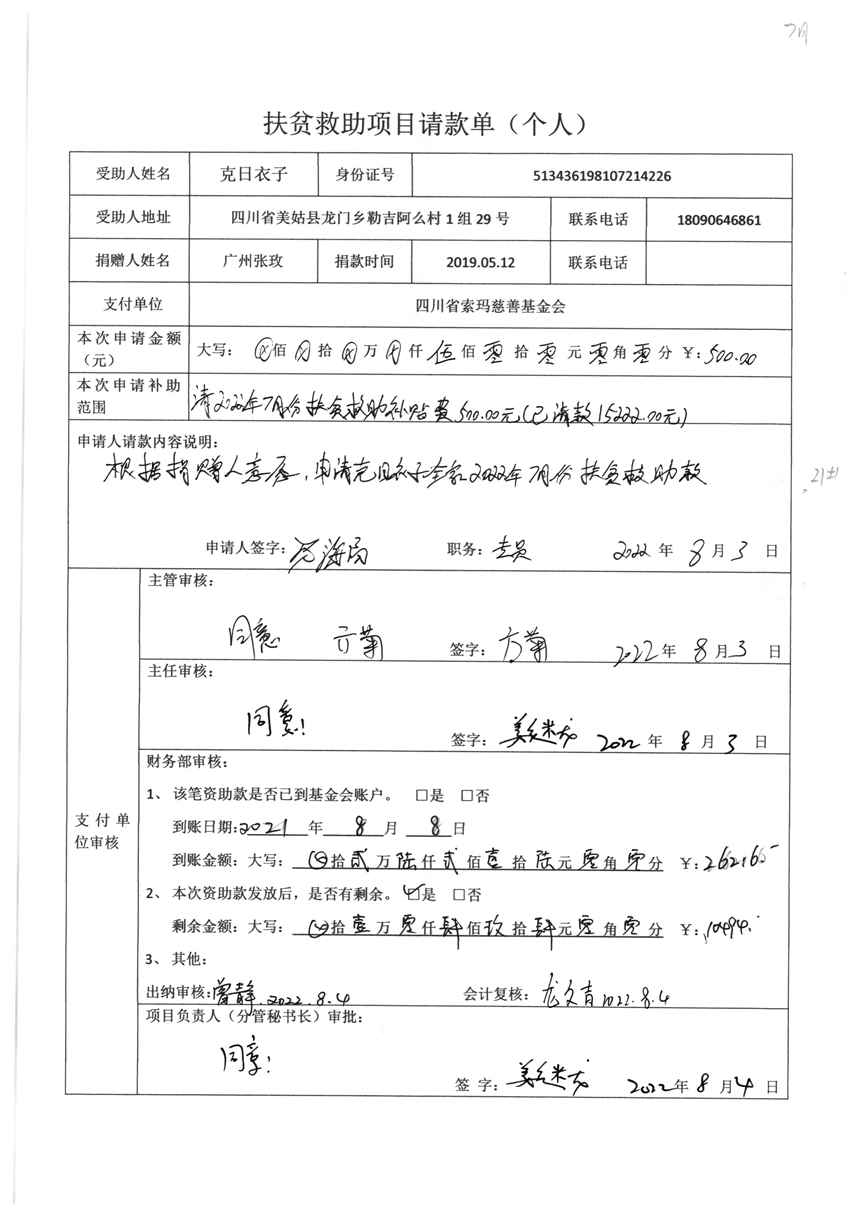 7月
扶贫救助项目请款单（个人）
受助人姓名 克日衣子 身份证号 513436198107214226
受助人地址 四川省美姑县龙门乡勒吉阿么村1组29号 联系电话 18090646861
捐赠人姓名 广州张玫 捐款时间 2019.05.12 联系电话
支付单位 四川省索玛慈善基金会
本次申请金额（元） 大写： 佰 拾 万 仟 伍 佰 零 拾 零 元 零 角 零 分 ￥:500.00
本次申请补助范围 请2022年7月份扶贫救助补贴费500.00元(已请款15222.00元)
申请人请款内容说明：
根据捐赠人意愿，申请克日衣子全家2022年7月份扶贫救助款
申请人签字： 职务：专员 2022 年 8 月 3 日
支付单位审核
主管审核：
同意 方菊 签字：方菊 2022 年 8 月 3 日
主任审核：
同意！ 签字： 2022 年 8 月 3 日
财务部审核：
1、 该笔资助款是否已到基金会账户。 □是 □否
到账日期:2021 年 8 月 8 日
到账金额：大写： 拾 贰 万 陆 仟 贰 佰 壹 拾 陆 元 零 角 零 分 ￥:
2、 本次资助款发放后，是否有剩余。 ☑是 □否
剩余金额：大写： 拾 壹 万 零 仟 肆 佰 玖 拾 肆 元 零 角 零 分 ￥:10494.
3、 其他：
出纳审核:曾静 2022.8.4 会计复核：龙文青 2022.8.4
项目负责人（分管秘书长）审批：
同意！
签 字： 2022 年 8 月 4 日